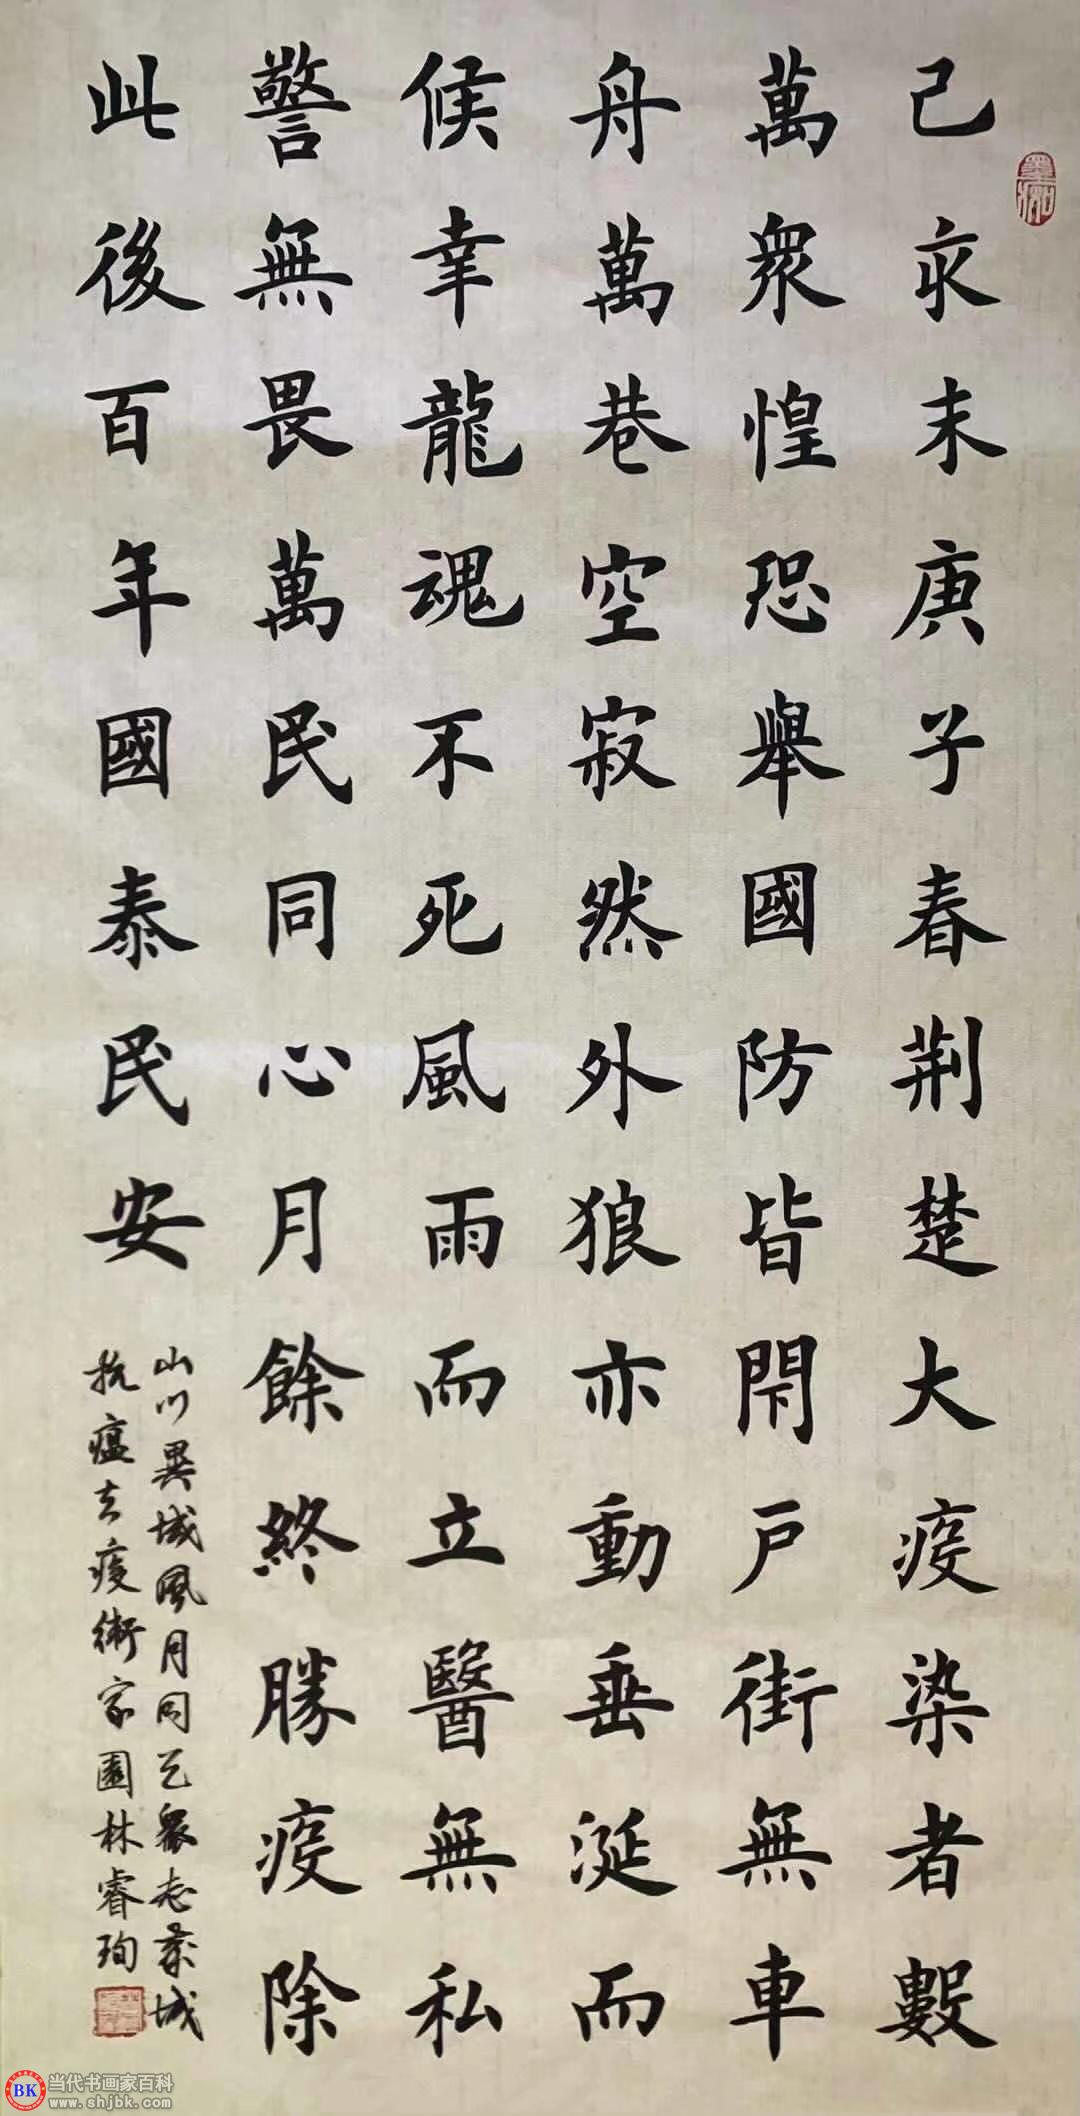 己亥末庚子春荆楚大疫染者數
萬衆惶恐舉國防皆閇戶街無車
舟萬巷空寂然外狼亦動垂涎而
候幸龍魂不死風雨而立醫無私
警無畏萬民同心月餘終勝疫除
此後百年國泰民安
山川異域風月同天衆志成城
抗瘟去疫衛家園林睿珣
BK
当代书画家百科
www.shjbk.com